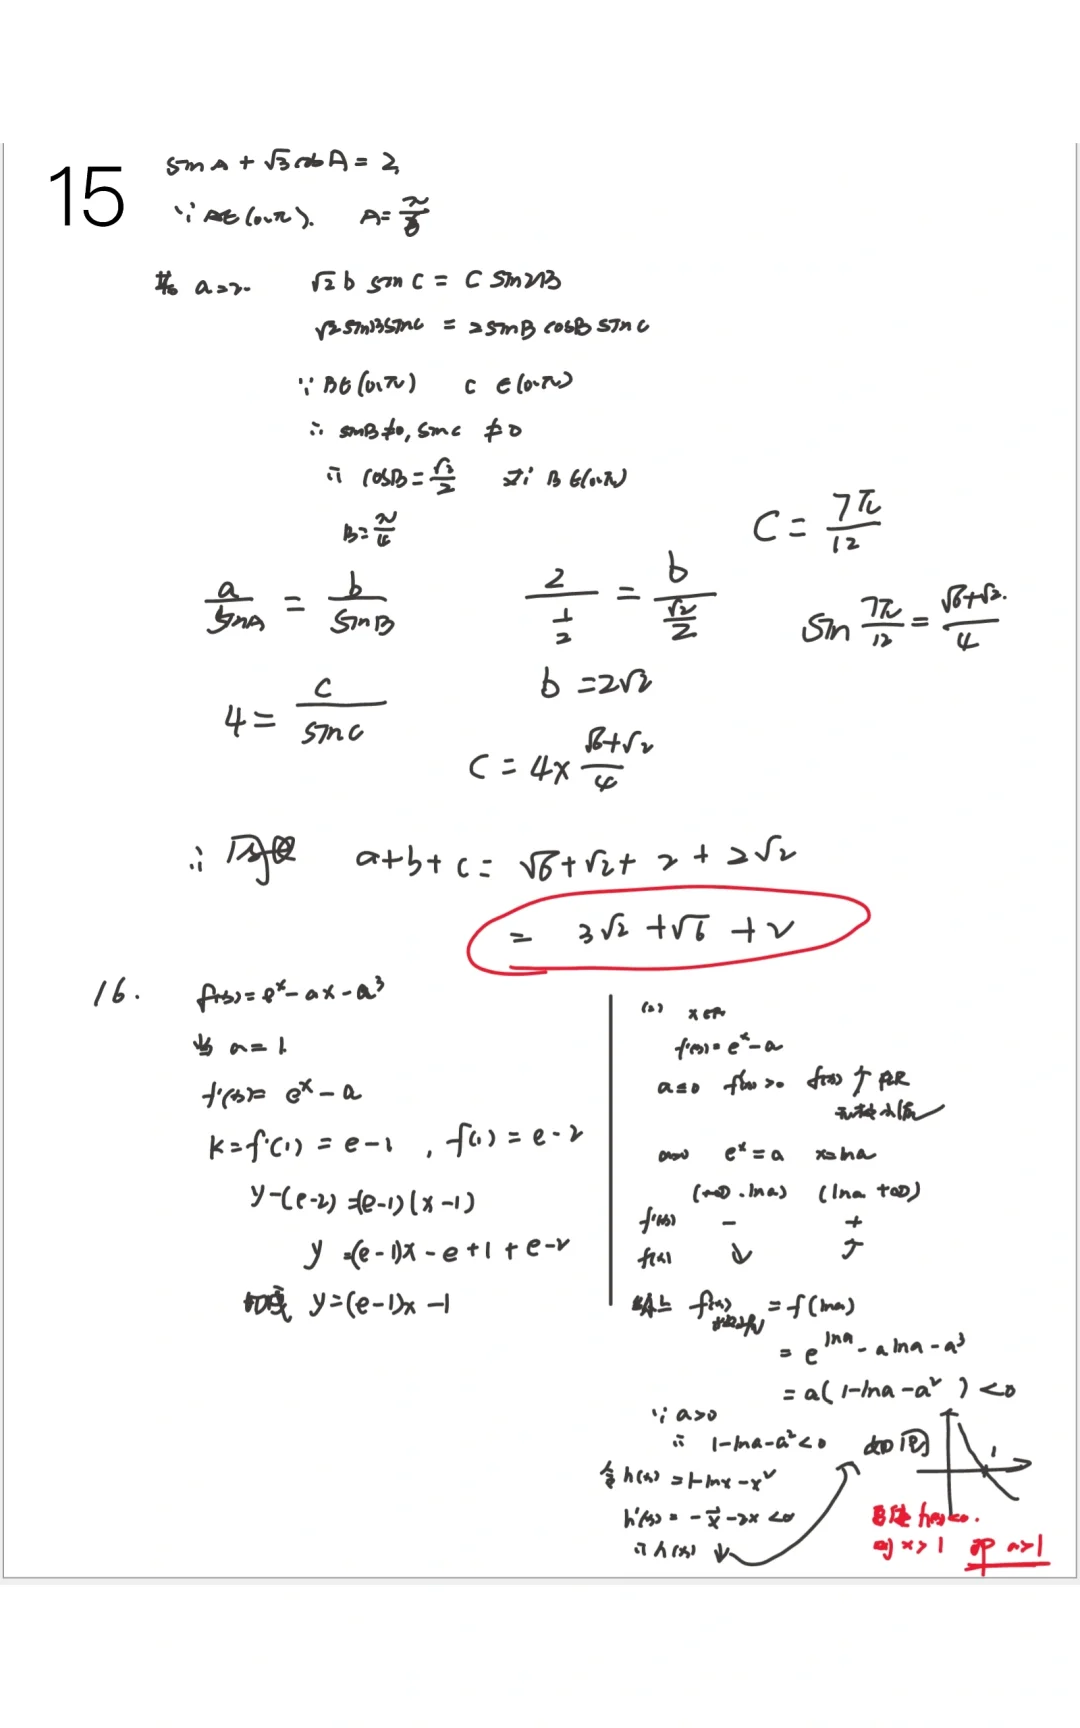 15
sinA + √3cosA = 2,
∵ A∈(0,π). A=π/6
若 a=2. √2 b sin C = C sin2B
√2 sinB sinC = 2sinB cosB sin C
∵ B∈(0,π) C ∈(0,π)
∴ sinB≠0, sinC ≠0
∴ cosB=√2/2 又∵ B∈(0,π)
B=π/4
C = 7π/12
a/sinA = b/sinB
2/(1/2) = b/(√2/2)
sin 7π/12 = (√6+√2)/4
b =2√2
4 = c/sinC
C = 4× (√6+√2)/4
∴ 周长 a+b+c= √6+√2+ 2 + 2√2
= 3√2 +√6 +2
16.
f(x)=e^x-ax-a³
当 a=1
f'(x)= e^x - a
K=f'(1) = e-1 , f(1) = e-2
y-(e-2) =(e-1)(x-1)
y =(e-1)x - e +1 + e-2
y=(e-1)x -1
(2) x∈R
f'(x)= e^x-a
a≤0 f'(x)>0 f(x)↑ 在R
无极小值
a>0 e^x=a x=lna
(-∞, lna) (lna +∞)
f'(x) - +
f(x) ↓ ↑
综上 f(x)极小值 = f(lna)
= e^lna - a lna - a³
= a(1-lna-a²) <0
∵ a>0
∴ 1-lna-a²<0 如图
1
令h(x) =1-lnx-x²
h'(x) = -1/x -2x <0
∴ h(x) ↓
h(x)<0.
则 x>1 即 a>1